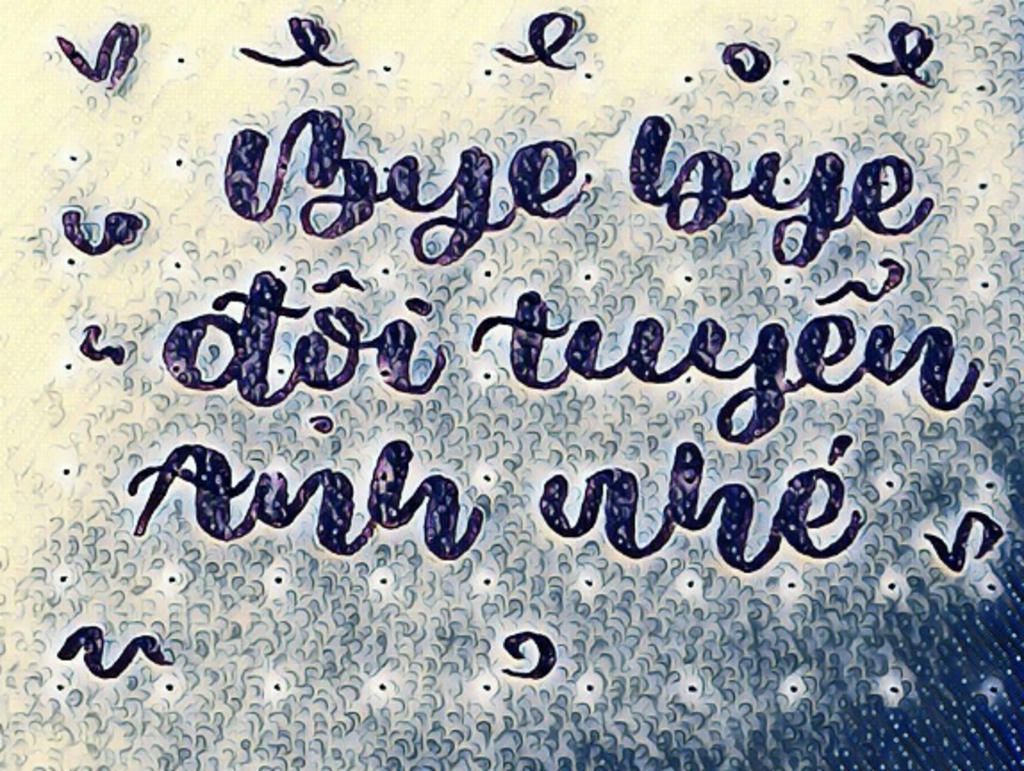 Bye bye
đội tuyển
Anh nhé